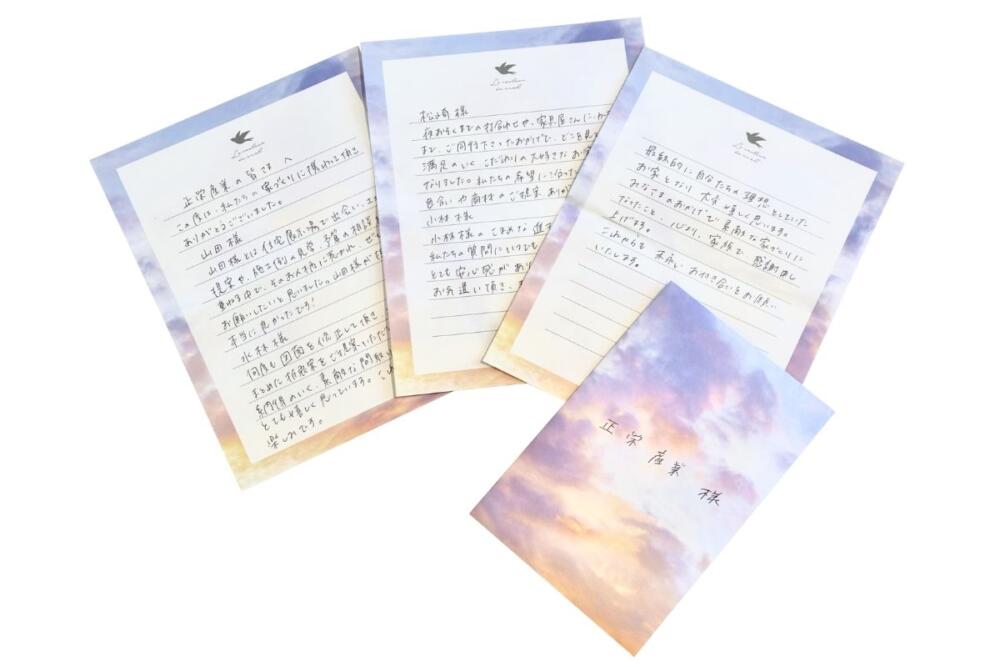 正栄産業の皆さまへ
この度は、私たちの家づくりに携わって頂き
ありがとうございました。
山田様
山田様とは住宅展示場で出会い、
提案や、施工例の見学、予算の相談
重ねる中で、そのお人柄に惹かれ、ぜ
お願いしたいと思いました。山田様が
本当に良かったです！
水林様
何度も図面を修正して頂き
まとめた折衷案をご提案いただ
納得のいく、素敵な間取り
とても嬉しく思っています。
楽しみです。
松崎様
夜おそくまでの打合わせや、家具屋さんに
まで、ご同行下さったおかげで、どこを見
満足のいくこだわりの大好きなお家
なりました。私たちの希望に沿った
色合いや商材のご提案
小林様
小林様のこまめな進
私たちの質問にいつでも
とても安心感があり
お気遣い頂き、
最終的に自分たちの理想としていた
お家となり大変嬉しく思います。
みなさまのおかげで素敵な家づくりに
なったこと、心より、家族で感謝申し
上げます。
これからも末永いお付き合いをお願い
いたします。
正栄産業様